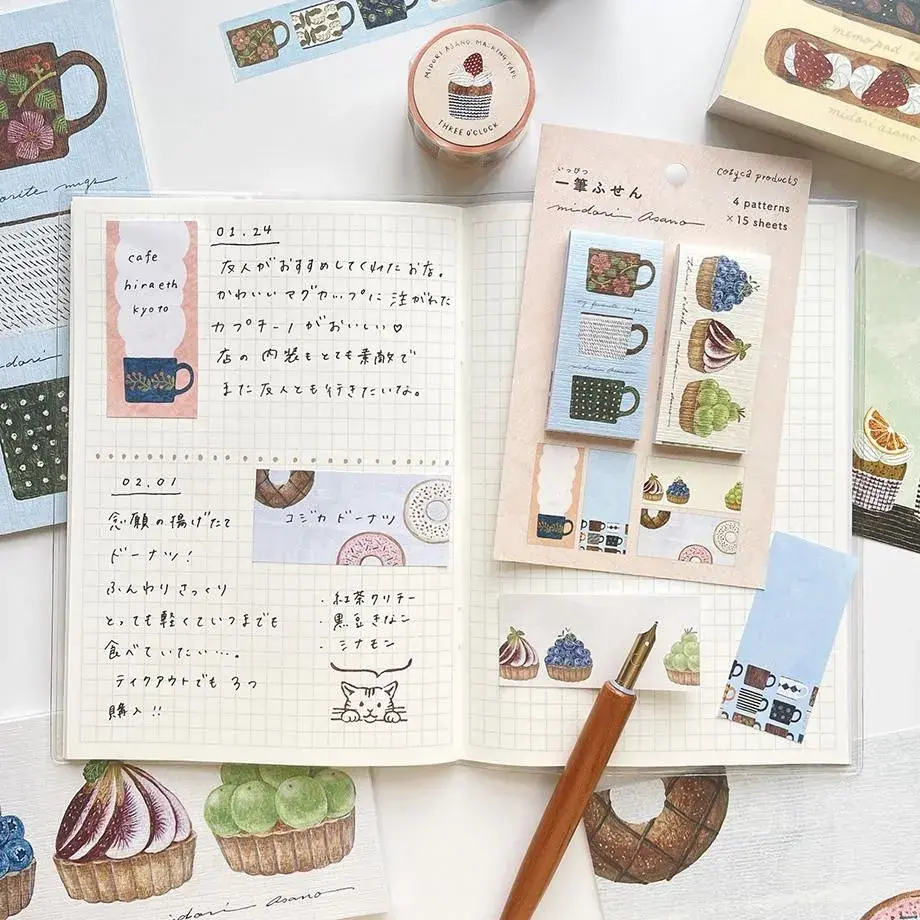 MIDORI ASANO MASKING TAPE
THREE O'CLOCK
memo pad
midori asano
favorite mugs
midori
いっぴつ
一筆ふせん
midori asano
cozyca products
4 patterns
×15 sheets
my favorite mugs
midori asano
cafe
hiraeth
kyoto
01.24
友人がおすすめしてくれたお店。
かわいいマグカップに注がれた
カプチーノがおいしい♡
店の内装もとても素敵で
また友人とも行きたいな。
02.01
念願の揚げたて
ドーナツ!
ふんわりさっくり
とっても軽くていつまでも
食べていたい…。
テイクアウトでも3つ
購入!!
コジカドーナツ
・紅茶クリチー
・黒豆きなこ
・シナモン
midori asano